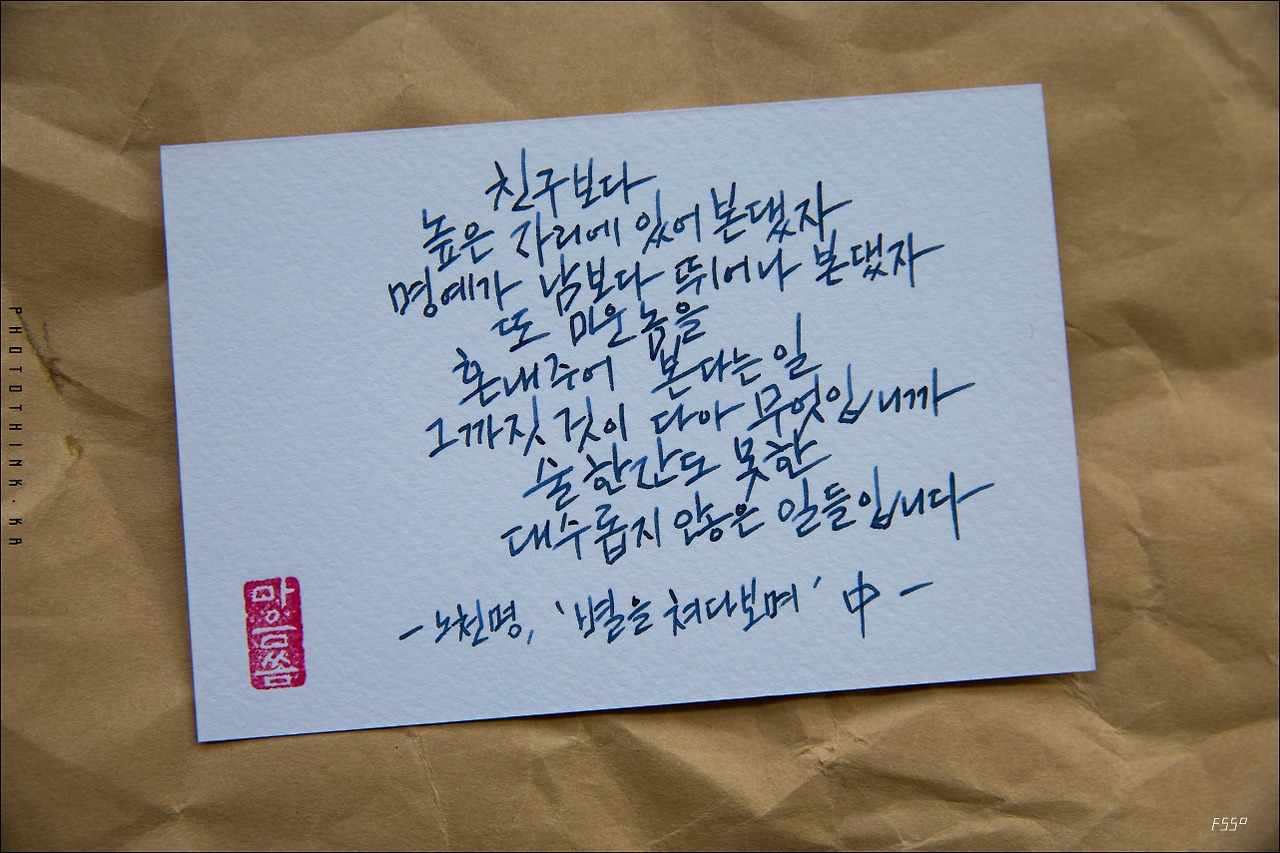 친구보다
높은 자리에 있어 본댔자
명예가 남보다 뛰어나 본댔자
또 미운 놈을
혼내주어 본다는 일
그까짓 것이 다아 무엇입니까
술 한잔도 못한
대수롭지 않은 일들입니다
- 노천명, '별을 쳐다보며' 中 -
PHOTOTHINK.KA